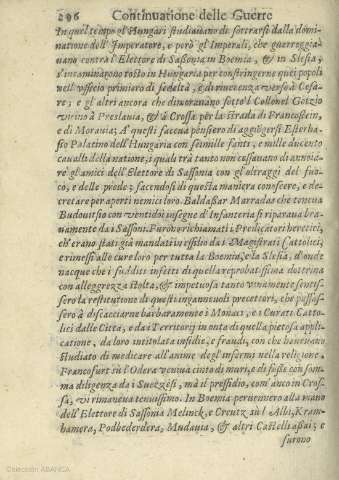 296 Continuatione delle Guerre
In quel tempo gl'Hungari studiauano di sottrarsi dalla domi-
natione dell'Imperatore, e però gl'Imperiali, che guerreggia-
uano contro l'Elettore di Sassonia in Boemia, & in Slesia,
s'incaminarono tosto in Hungaria per constringerne quei popoli
nell'vfficio primiero di fedeltà, e di riuerenza verso à Cesa-
re; e gl'altri ancora che dimorauano sotto'l Collonel Gotzio
vicino à Preslauia, & à Crossa per la strada di Francostein,
e di Morauia; A' questi faceua pensiero di aggiogersi Esterha-
sio Palatino dell'Hungaria con seimille fanti, e mille ducento
caualli della natione, i quali trà tanto non cessauano di annoia-
re gl'amici dell'Elettore di Sassonia con gl'oltraggi del fuo-
co, e delle prede; facendosi di questa maniera conoscere, e de-
cretare per aperti nemici loro. Baldassar Marradas che teneua
Buduuitsio con ventidoi insegne d'Infanteria si riparaua bra-
uamente da i Sassoni. Furono richiamati i Predicatori heretici,
ch'erano stati già mandati in essilio da i Magistrati Cattolici,
e rimessi alle cure loro per tutta la Boemia, e la Slesia, d'onde
nacque che i sudditi infetti di quella reprobatissima dottrina
con allegrezza stolta, & impetuosa tanto viuamente sentis-
sero la restitutione di questi ingannevoli precettori, che passas-
sero à discacciarne barbaramente i Monaci, e i Curati Catto-
lici dalle Città, e da i Territorij in onta di quella pietosa appli-
catione, da loro intitolata insidie, e fraudi, con che haueuano
studiato di medicare all'anime degl'infermi nella religione.
Francofurt su l'Odera veniua cinto di muri, e di fosse con som-
ma diligenza da i Suezzesi, mà il pressidio, com'anco in Cros-
sa, vi rimaneua tenuissimo. In Boemia peruennero alla mano
dell'Elettore di Sassonia Melinck, e Creutz sù l'Albi, Kram-
hamora, Podbederdera, Mudauia, & altri Castelli assai; e
furono
Colección ABANCA